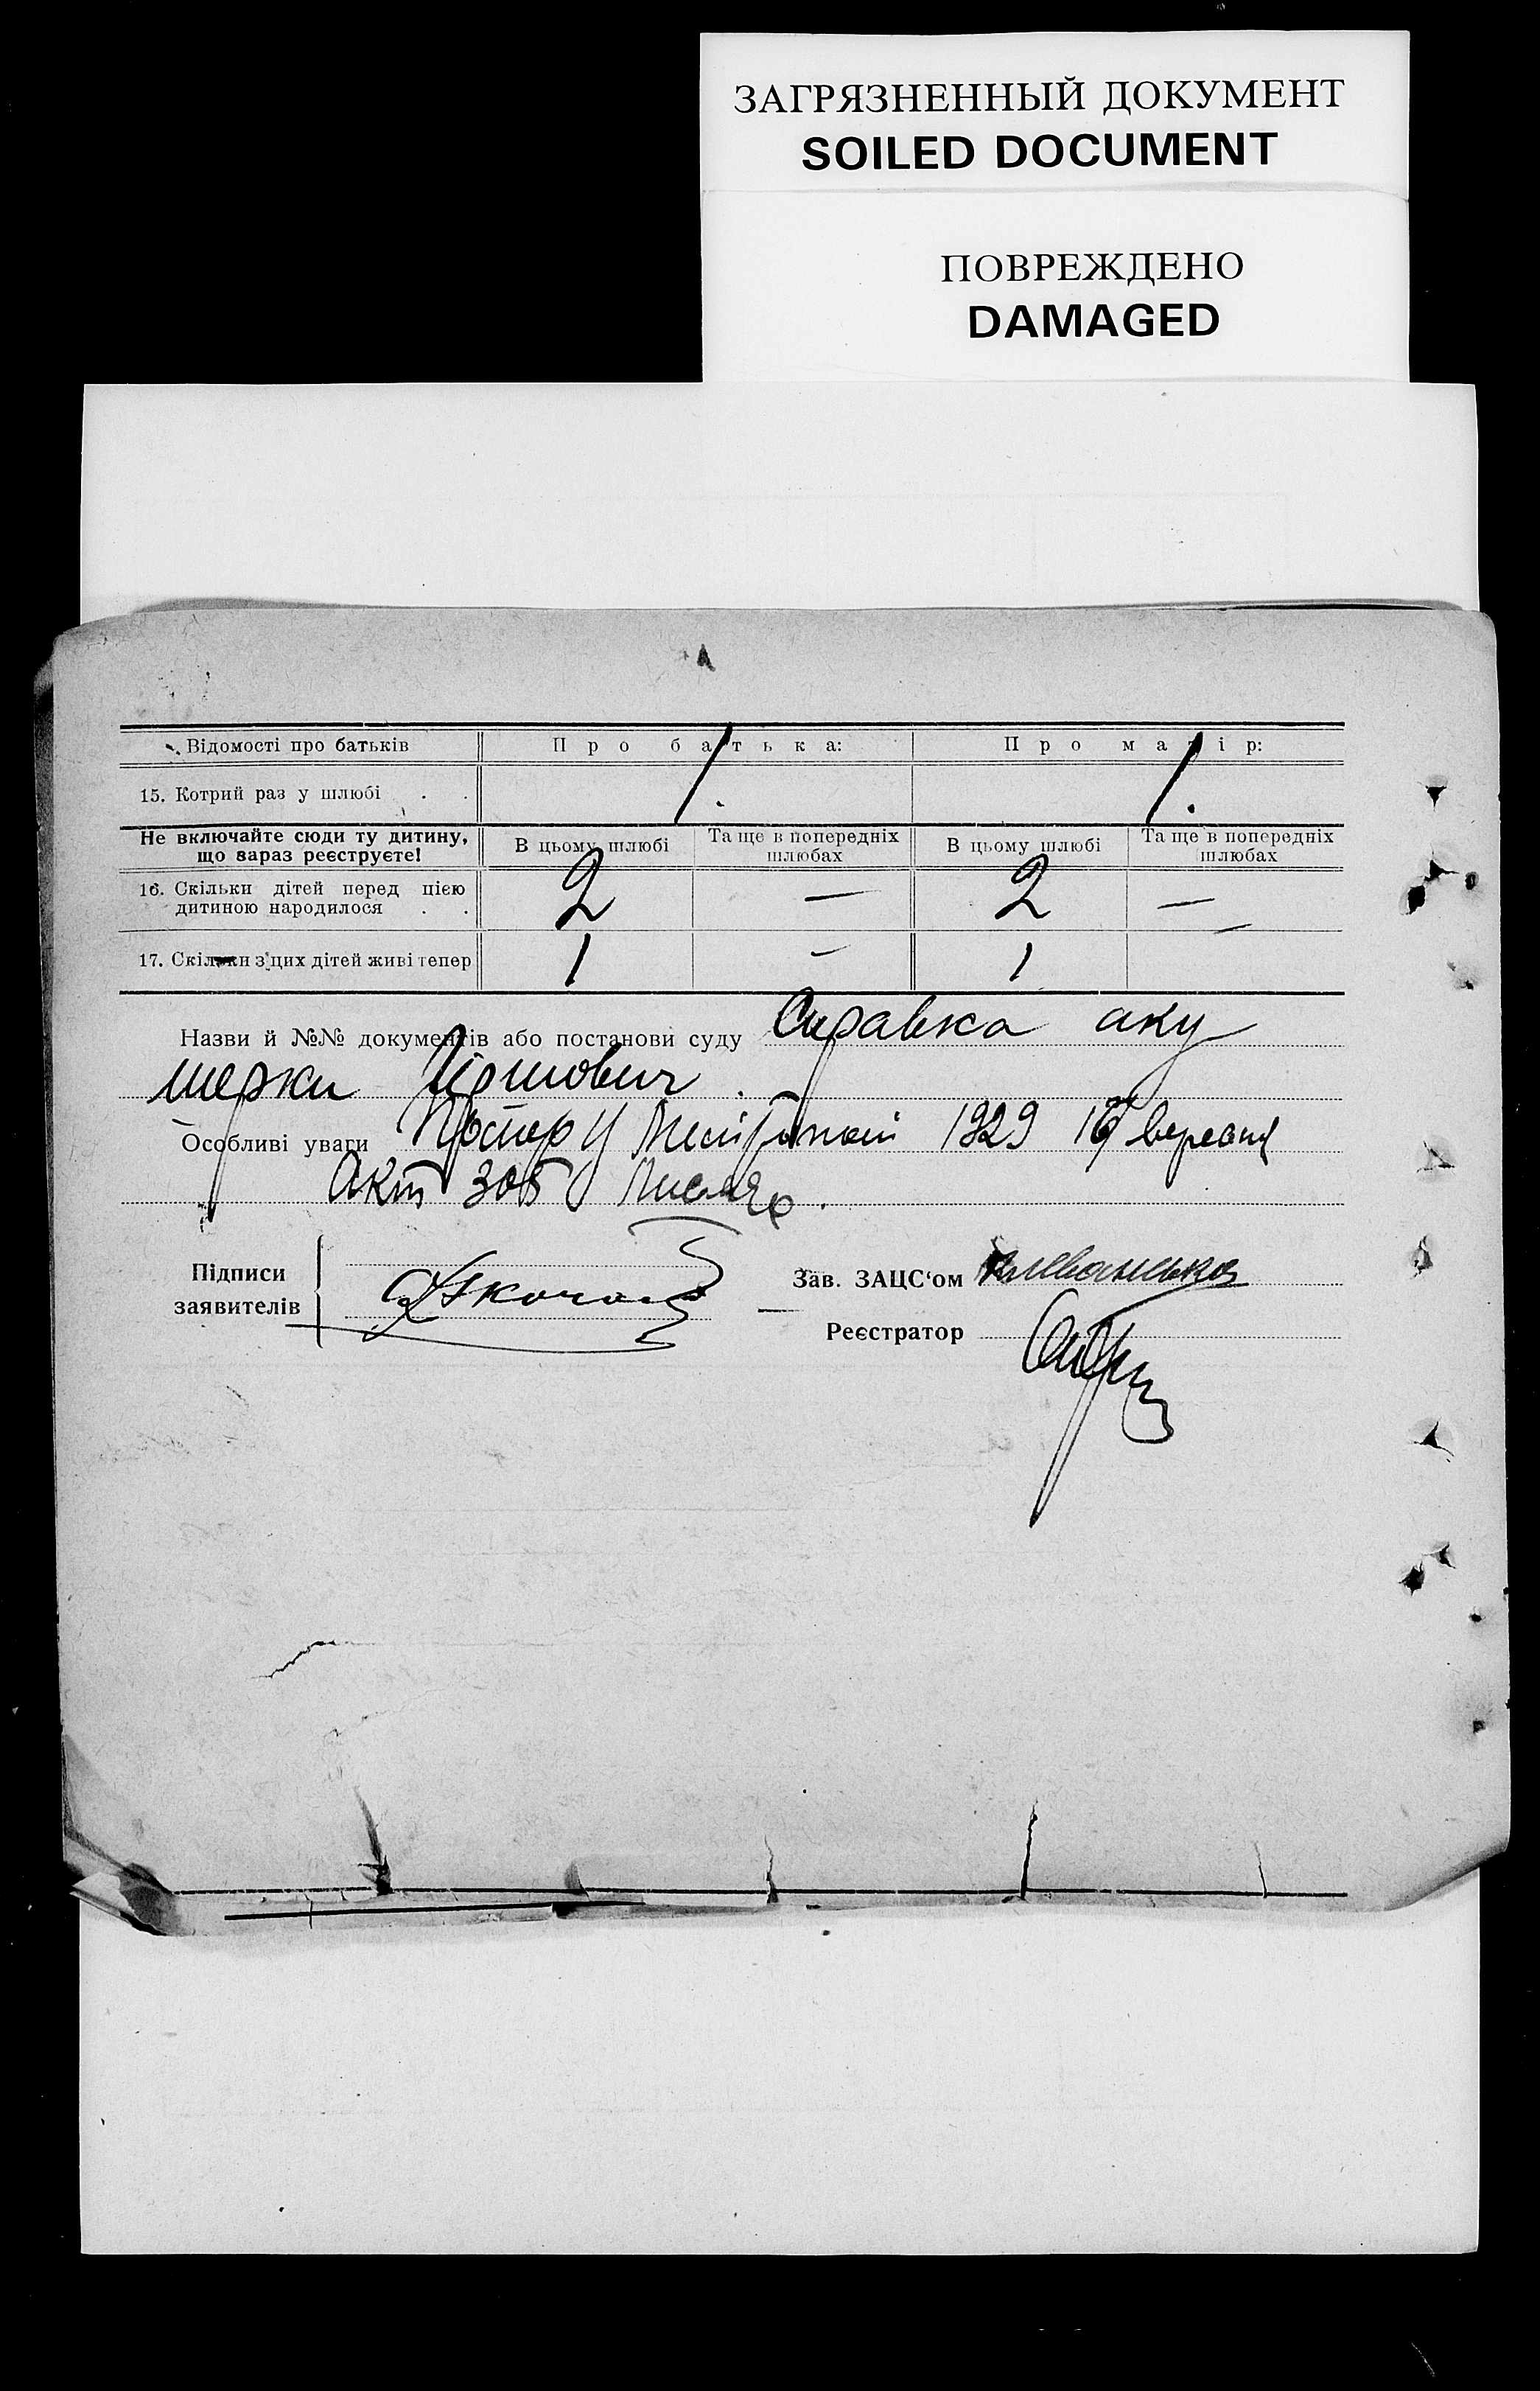 ЗАГРЯЗНЕННЫЙ ДОКУМЕНТ
SOILED DOCUMENT
ПОВРЕЖДЕНО
DAMAGED
Відомості про батьків Про батька: Про матір:
15. Котрий раз у шлюбі . . 1. 1.
Не включайте сюди ту дитину, що зараз реєструєте! В цьому шлюбі Та ще в попередніх шлюбах В цьому шлюбі Та ще в попередніх шлюбах
16. Скільки дітей перед цією дитиною народилося . . 2 — 2 —
17. Скільки з цих дітей живі тепер 1 — 1
Назви й №№ документів або постанови суду Справка аку
шерки
Особливі уваги 1929 16 вересня
Акт 305
Підписи заявителів
Зав. ЗАЦС‘ом
Реєстратор